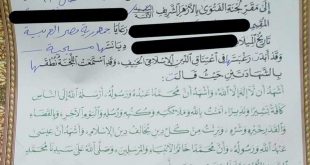 إلى مقر لجنة الفتوى بالأزهر الشريف
المقيم رعايا جمهورية مصر العربية
تاريخ الميلاد ديانتها مسيحية
وقد أبدت رغبتها في اعتناق الدين الإسلامى الحنيف، وقد استمعت اللجنة لنطقها
بالشهادتين حيث قالت:
أشهد أن لا إله إلا الله وأشهد أن محمدا عبده ورسوله، أرسله إلى الناس
كافة بشيرا ونذيرا، آمنت بالله وملائكته وكتبه ورسله واليوم الآخر
والقدر خيره وشره وبرئت من كل دين يخالف دين الإسلام، وأشهد أن عيسى
عبد الله ورسوله وأن محمدا خاتم الأنبياء والمرسلين وصلى الله على سيدنا محمد